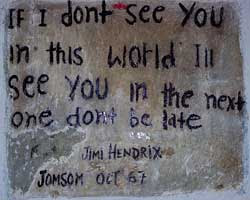 If I dont see you
in this world Ill
see you in the next
one dont be late
JIMI HENDRIX
JOMSOM OCT 67